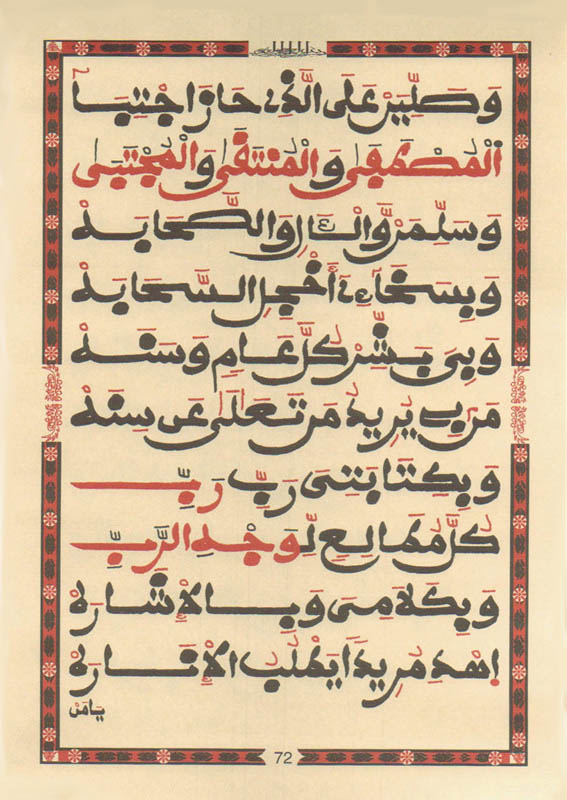 وَصَلِّيَنْ عَلَى الَّذِي حَازَ اجْتِبَا
الْمُصْطَفَى وَالْمُنْتَقَى وَالْمُجْتَبَى
وَسَلِّمَنْ وَالْـَالِ وَالصَّحَابَهْ
وَبِسَخَاءِي أَخْجِلِ السَّحَابَهْ
وَبِيَ بَشِّرْ كُلَّ عَامٍ وَسَنَهْ
يُرِيدُ مَنْ تَعَلَى عَن سِنَهْ
وَبِكِتَابَتِي رَبِّ رَبِّ
كُلَّ مُطَالِعٍ لِوَجْهِ الرَّبِّ
وَبِكَلَامِي وَبِالْإِشَارَهْ
اِهْدِ مُرِيدًا يَطْلُبُ الْإِنَارَهْ
يَامَنْ
72